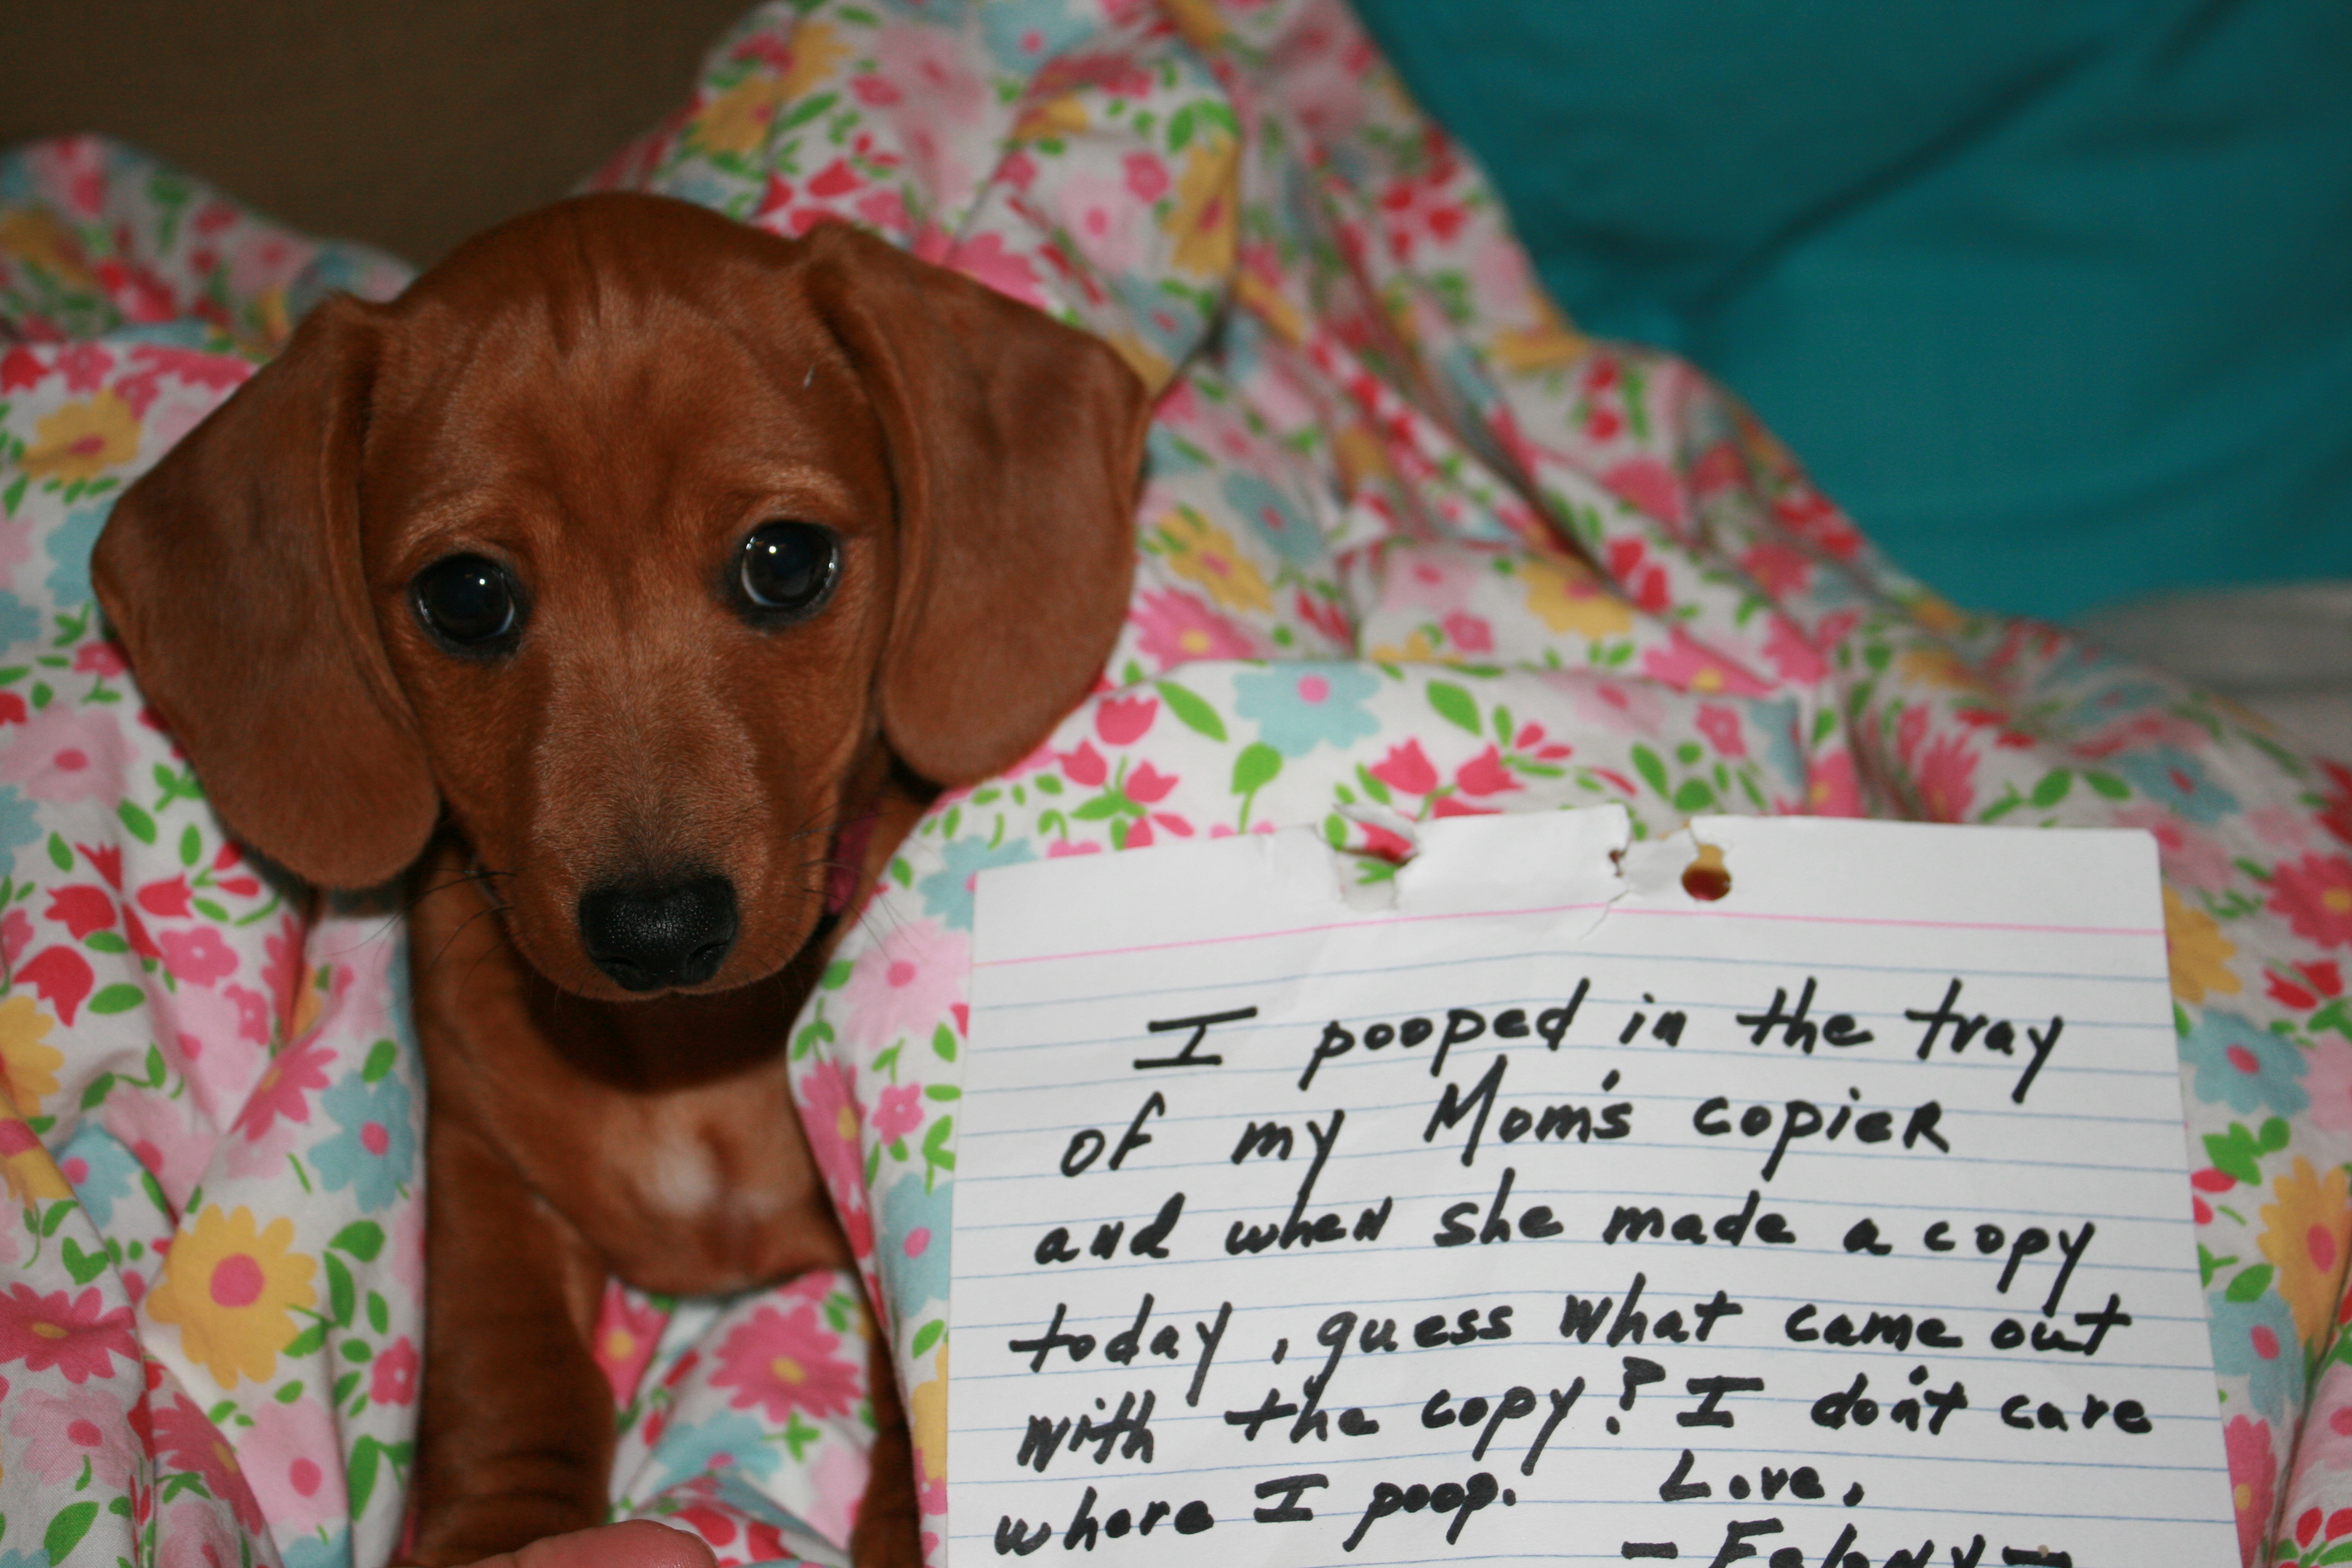 I pooped in the tray
of my Mom's copier
and when she made a copy
today, guess what came out
with the copy? I don't care
where I poop. Love,
- Felony -